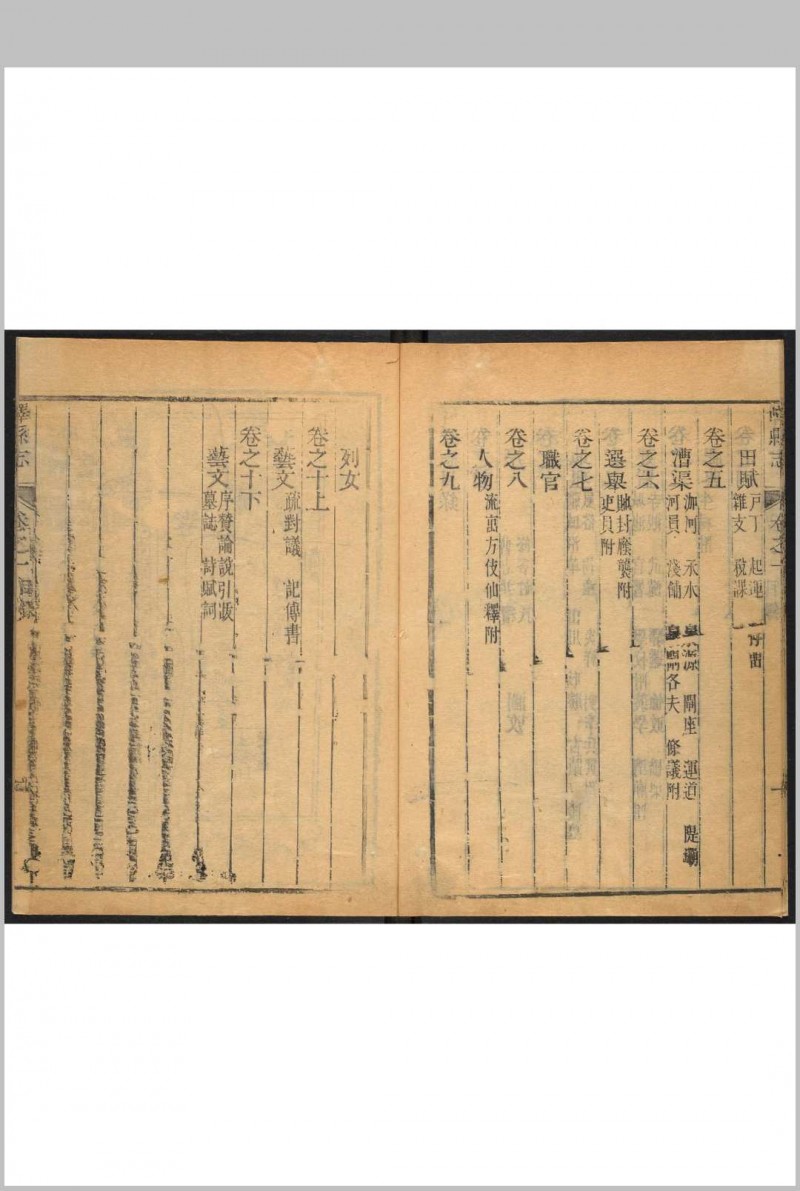 田賦 戶丁 起運 存留
雜支 稅課
卷之五
漕渠 泇河 泉源 閘座 運道 隄壩
河員 淺鋪 閘各夫 條議附
卷之六
選舉 貤封廕襲附
吏員附
卷之七
職官
卷之八
人物 流寓方伎仙釋附
卷之九
列女
卷之十上
藝文 疏對議 記傳書
卷之十下
藝文 序贊論說引跋
墓誌 詩賦詞
嶧縣志
卷之一
目錄